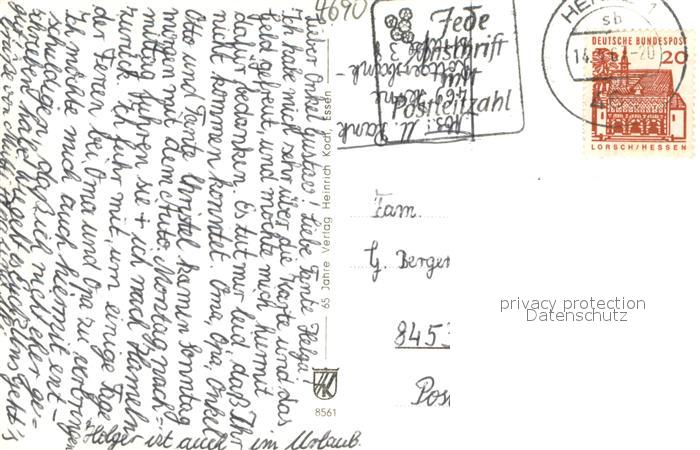 4690
Lieber Onkel Gustav! Liebe Tante Helga!
Ich habe mich sehr über die Karte und das
Geld gefreut, und möchte mich hiermit
dafür bedanken. Es tut mir leid, daß Ihr
nicht kommen konntet. Oma, Opa, Onkel
Otto und Tante Christel kamen Sonntag
morgen mit dem Auto. Montag nach-
mittag fuhren sie + ich nach Hameln
zurück. Ich fuhr mit, um einige Tage
der Ferien bei Oma und Opa zu verbringen
Ich möchte mich auch hiermit ent-
schuldigen, daß ich nicht eher ge-
schrieben habe.
Holger ist auch im Urlaub.
65 Jahre Verlag Heinrich Kodt, Essen
8561
Jede
Anschrift
mit
Postleitzahl
HERNE 1
sb
14.
-20
DEUTSCHE BUNDESPOST
20
LORSCH/HESSEN
Fam.
G. Berger
845
Pos
privacy protection
Datenschutz